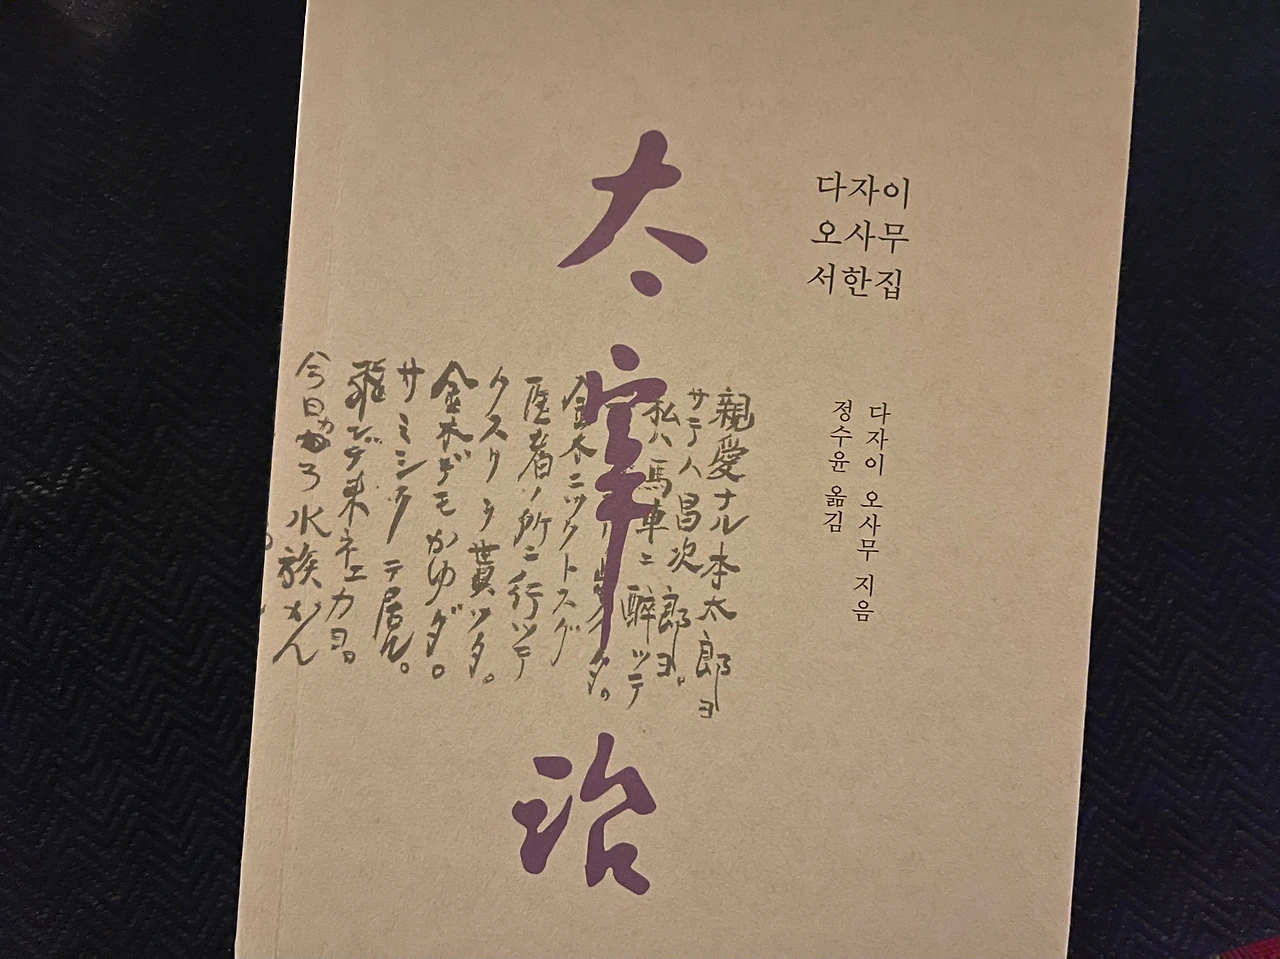 太宰治
다자이
오사무
서한집
다자이 오사무 지음
정수윤 옮김
親愛ナル本太郎ヨ
サテハ昌次郎ヨ。
私ハ馬車ニ酔ッテ
金木ニツクトスグ
医者ノ所ニ行ッテ
クスリヲ貰ッタ。
金木デモかゆダ。
サミシクテ居ル。
遊ンデ来ネエカヨ。
今日 水族かん